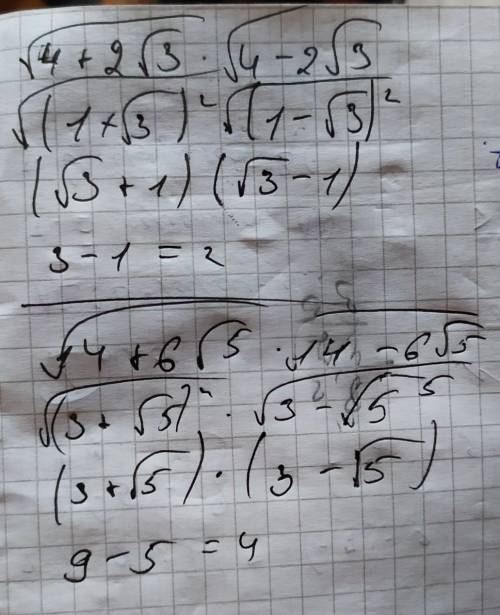 √(4 + 2√3) · √(4 - 2√3)
√((1 + √3)²) √((1 - √3)²)
(√3 + 1) (√3 - 1)
3 - 1 = 2
√(14 + 6√5 · 14 - 6√5)
√((3 + √5)²) · √(3 - √5
(3 + √5) · (3 - √5)
9 - 5 = 4